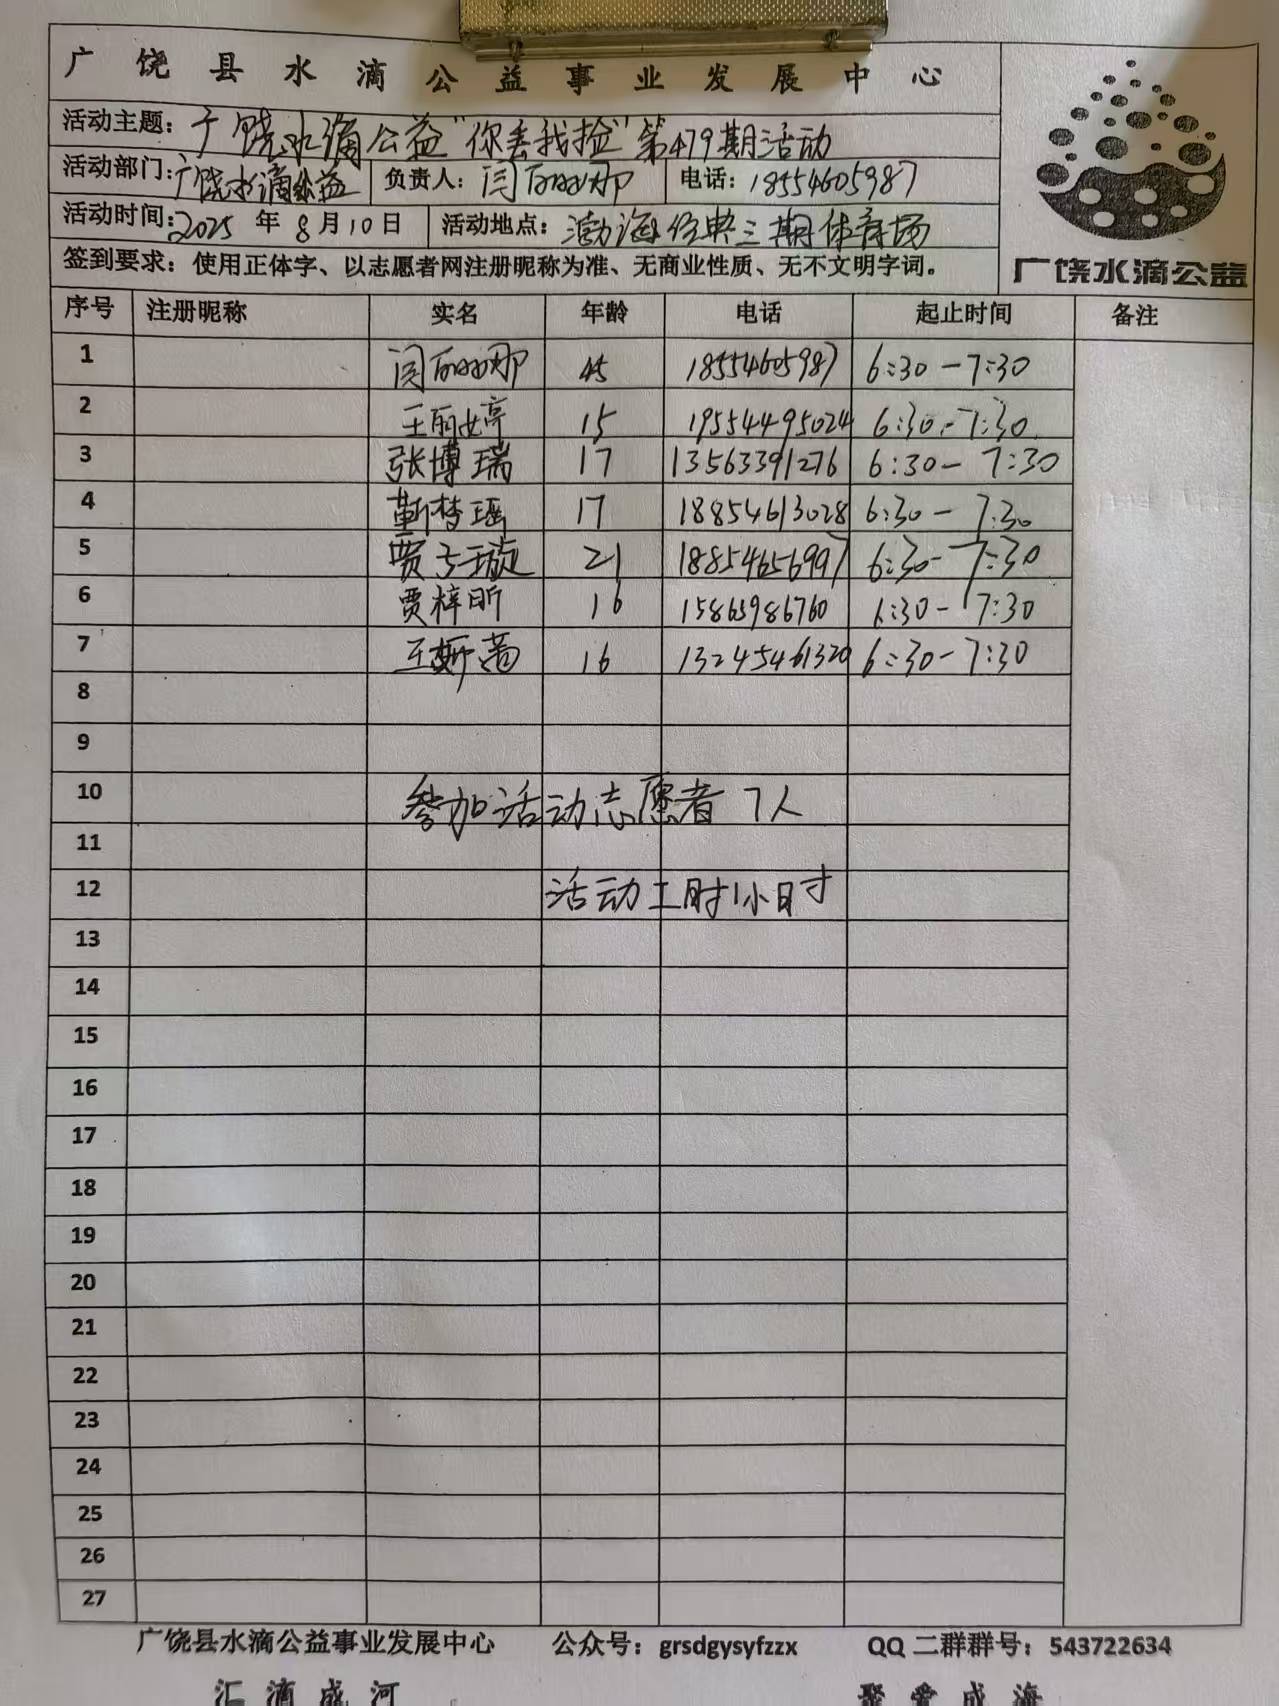 广饶县水滴公益事业发展中心
活动主题：广饶水滴公益“你丢我捡”第479期活动
活动部门：广饶水滴公益 负责人：闫丽娜 电话：18554605987
活动时间：2025年8月10日 活动地点：渤海经典三期体育场
签到要求：使用正体字、以志愿者网注册昵称为准、无商业性质、无不文明字词。
广饶水滴公益
序号 注册昵称 实名 年龄 电话 起止时间 备注
1 闫丽娜 45 18554605987 6:30-7:30
2 王丽婷 15 19554495024 6:30-7:30
3 张博瑞 17 13563391276 6:30-7:30
4 靳梦瑶 17 18854613028 6:30-7:30
5 贾子璇 21 18854656997 6:30-7:30
6 贾梓昕 16 15863986760 6:30-7:30
7 王 16 13245461320 6:30-7:30
8
9
10 参加活动志愿者7人
11
12 活动工时1小时
13
14
15
16
17
18
19
20
21
22
23
24
25
26
27
广饶县水滴公益事业发展中心 公众号：grsdgysyfzzx QQ二群群号：543722634
汇滴成河 聚爱成海